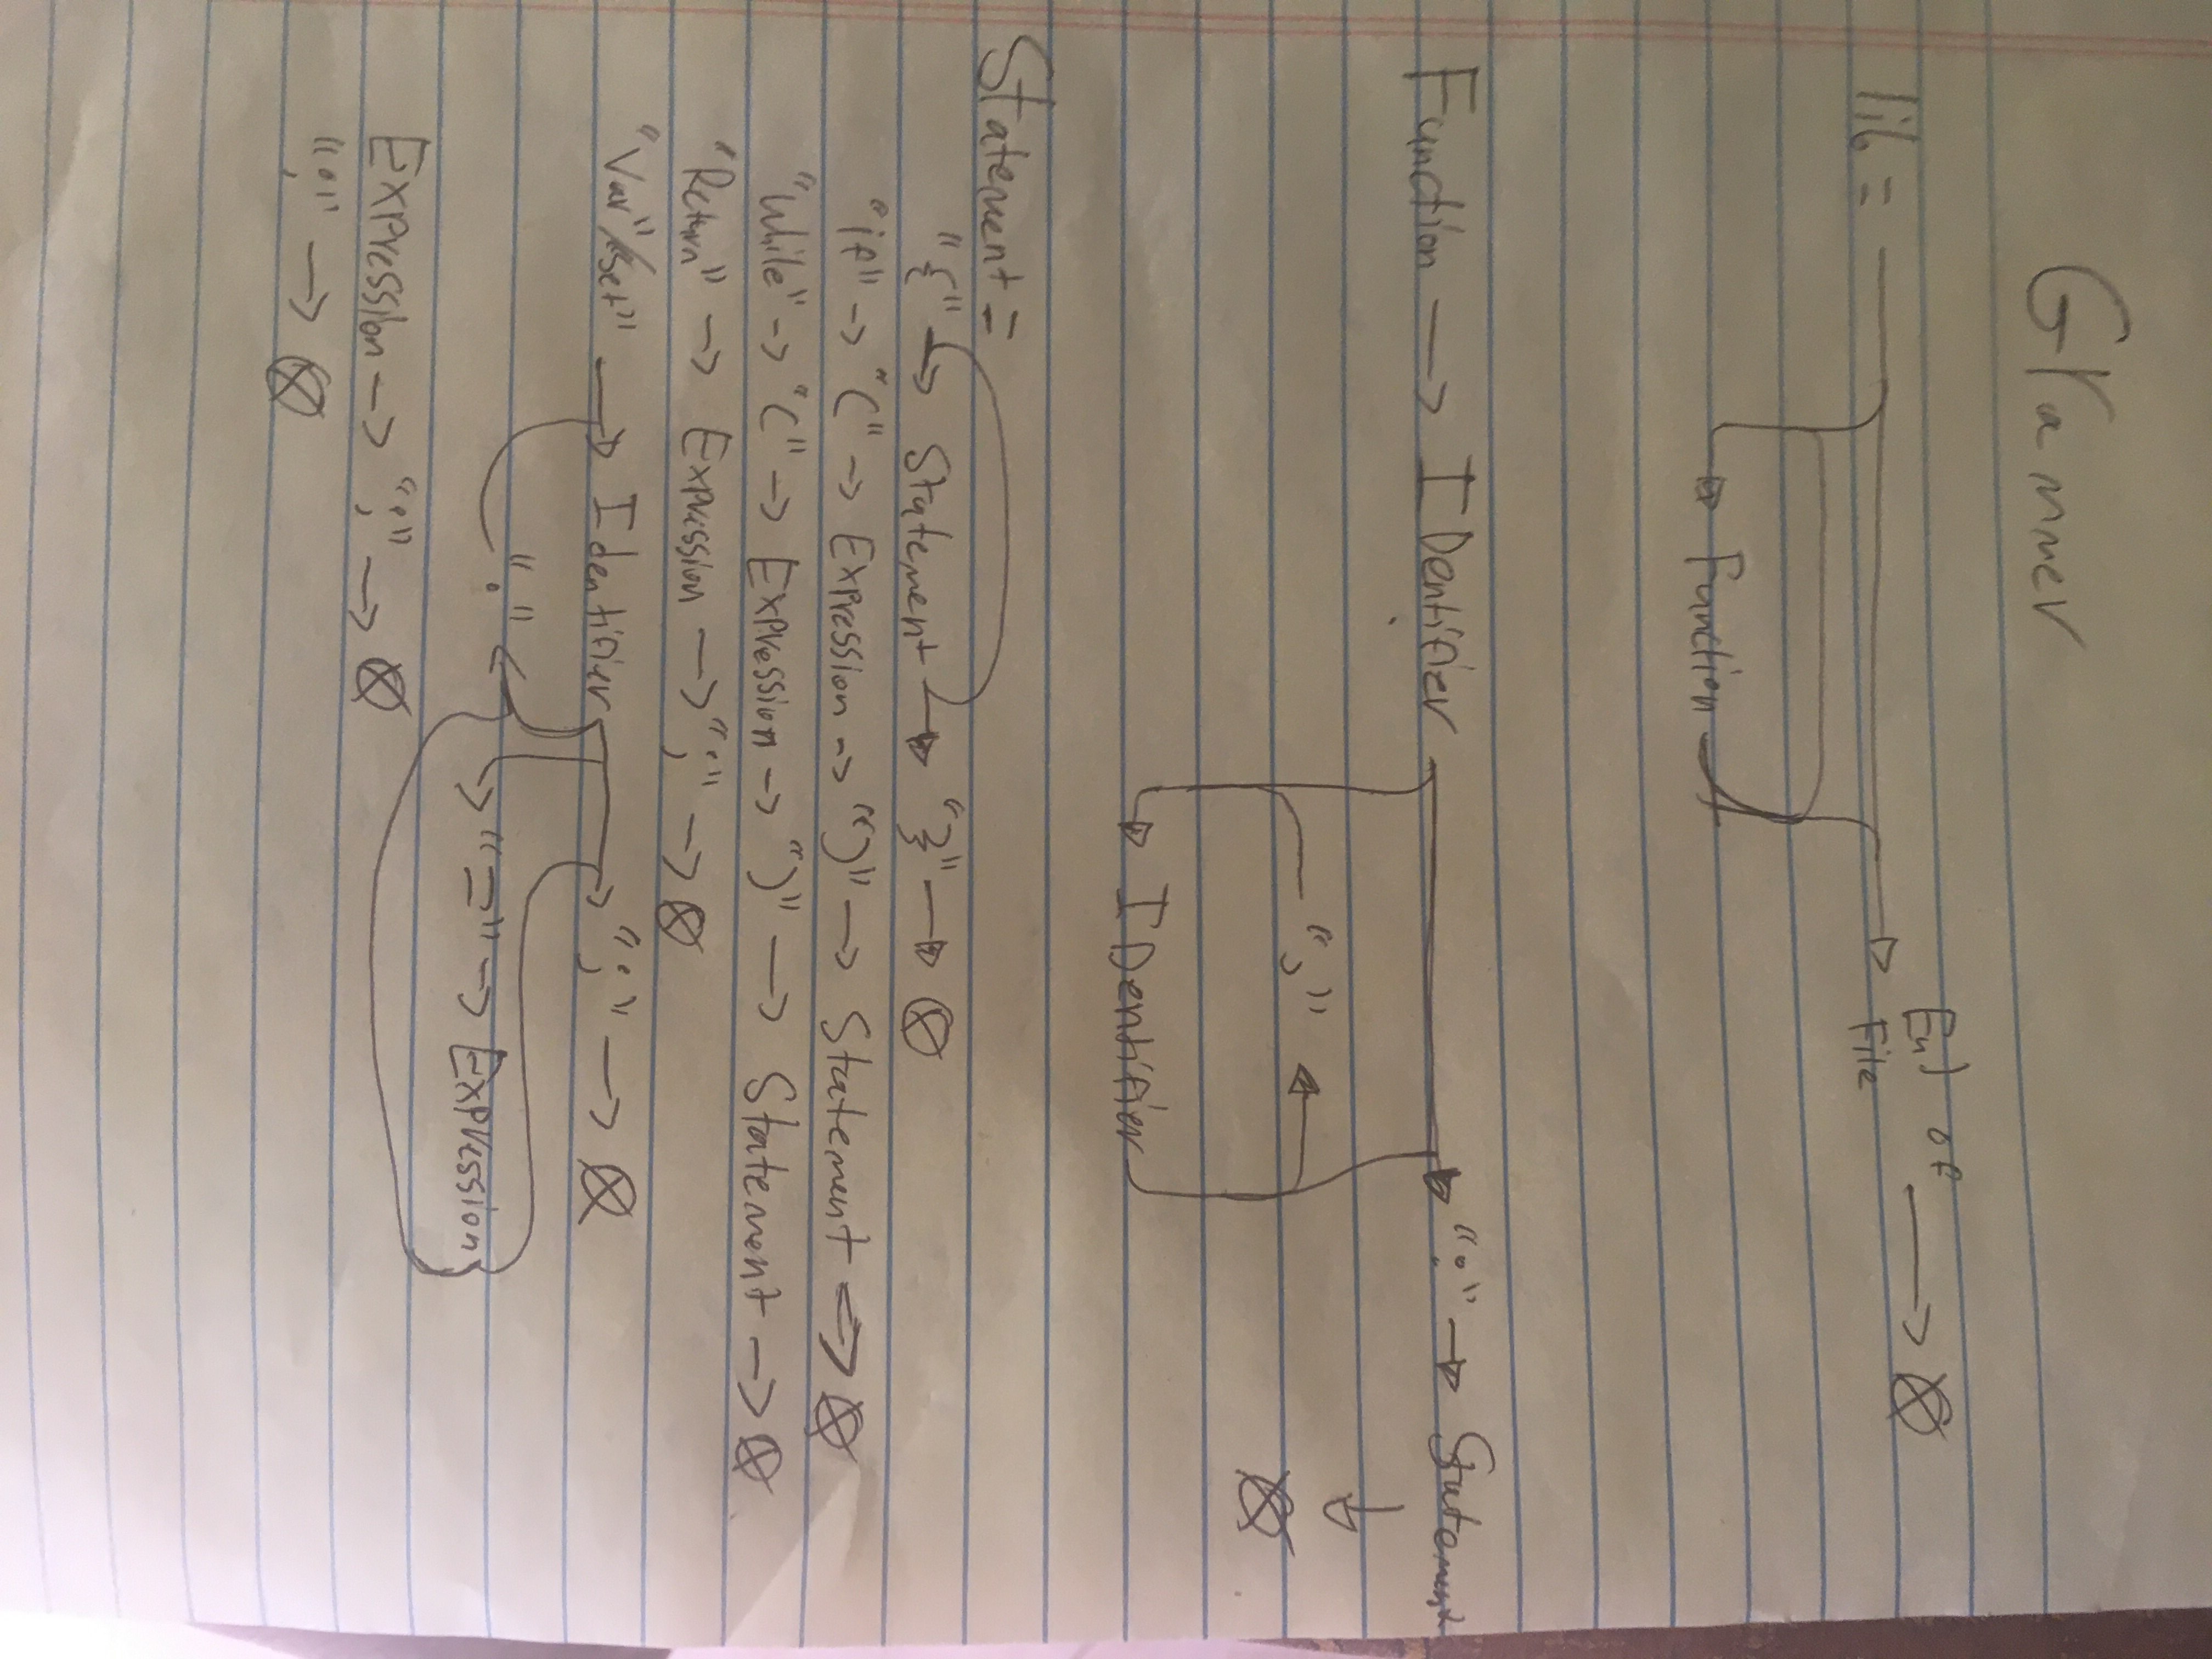 Gramner
lib = → End of → Ø
File
Function
Function → IDentifier → ":" → Statement
"," Ø
IDentifier
Statement =
"{" → Statement → "}" → Ø
"if" → "(" → Expression → ")" → Statement → Ø
"While" → "(" → Expression → ")" → Statement → Ø
"Return" → Expression → ";" → Ø
"Var"/"Set" → Identifier → ";" → Ø
"." → "=" → Expression
Expression → ";" → Ø
";" → Ø